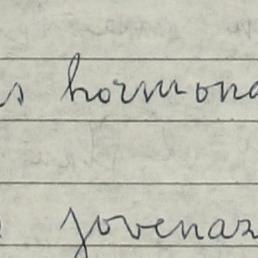 s hormona
jovenaz